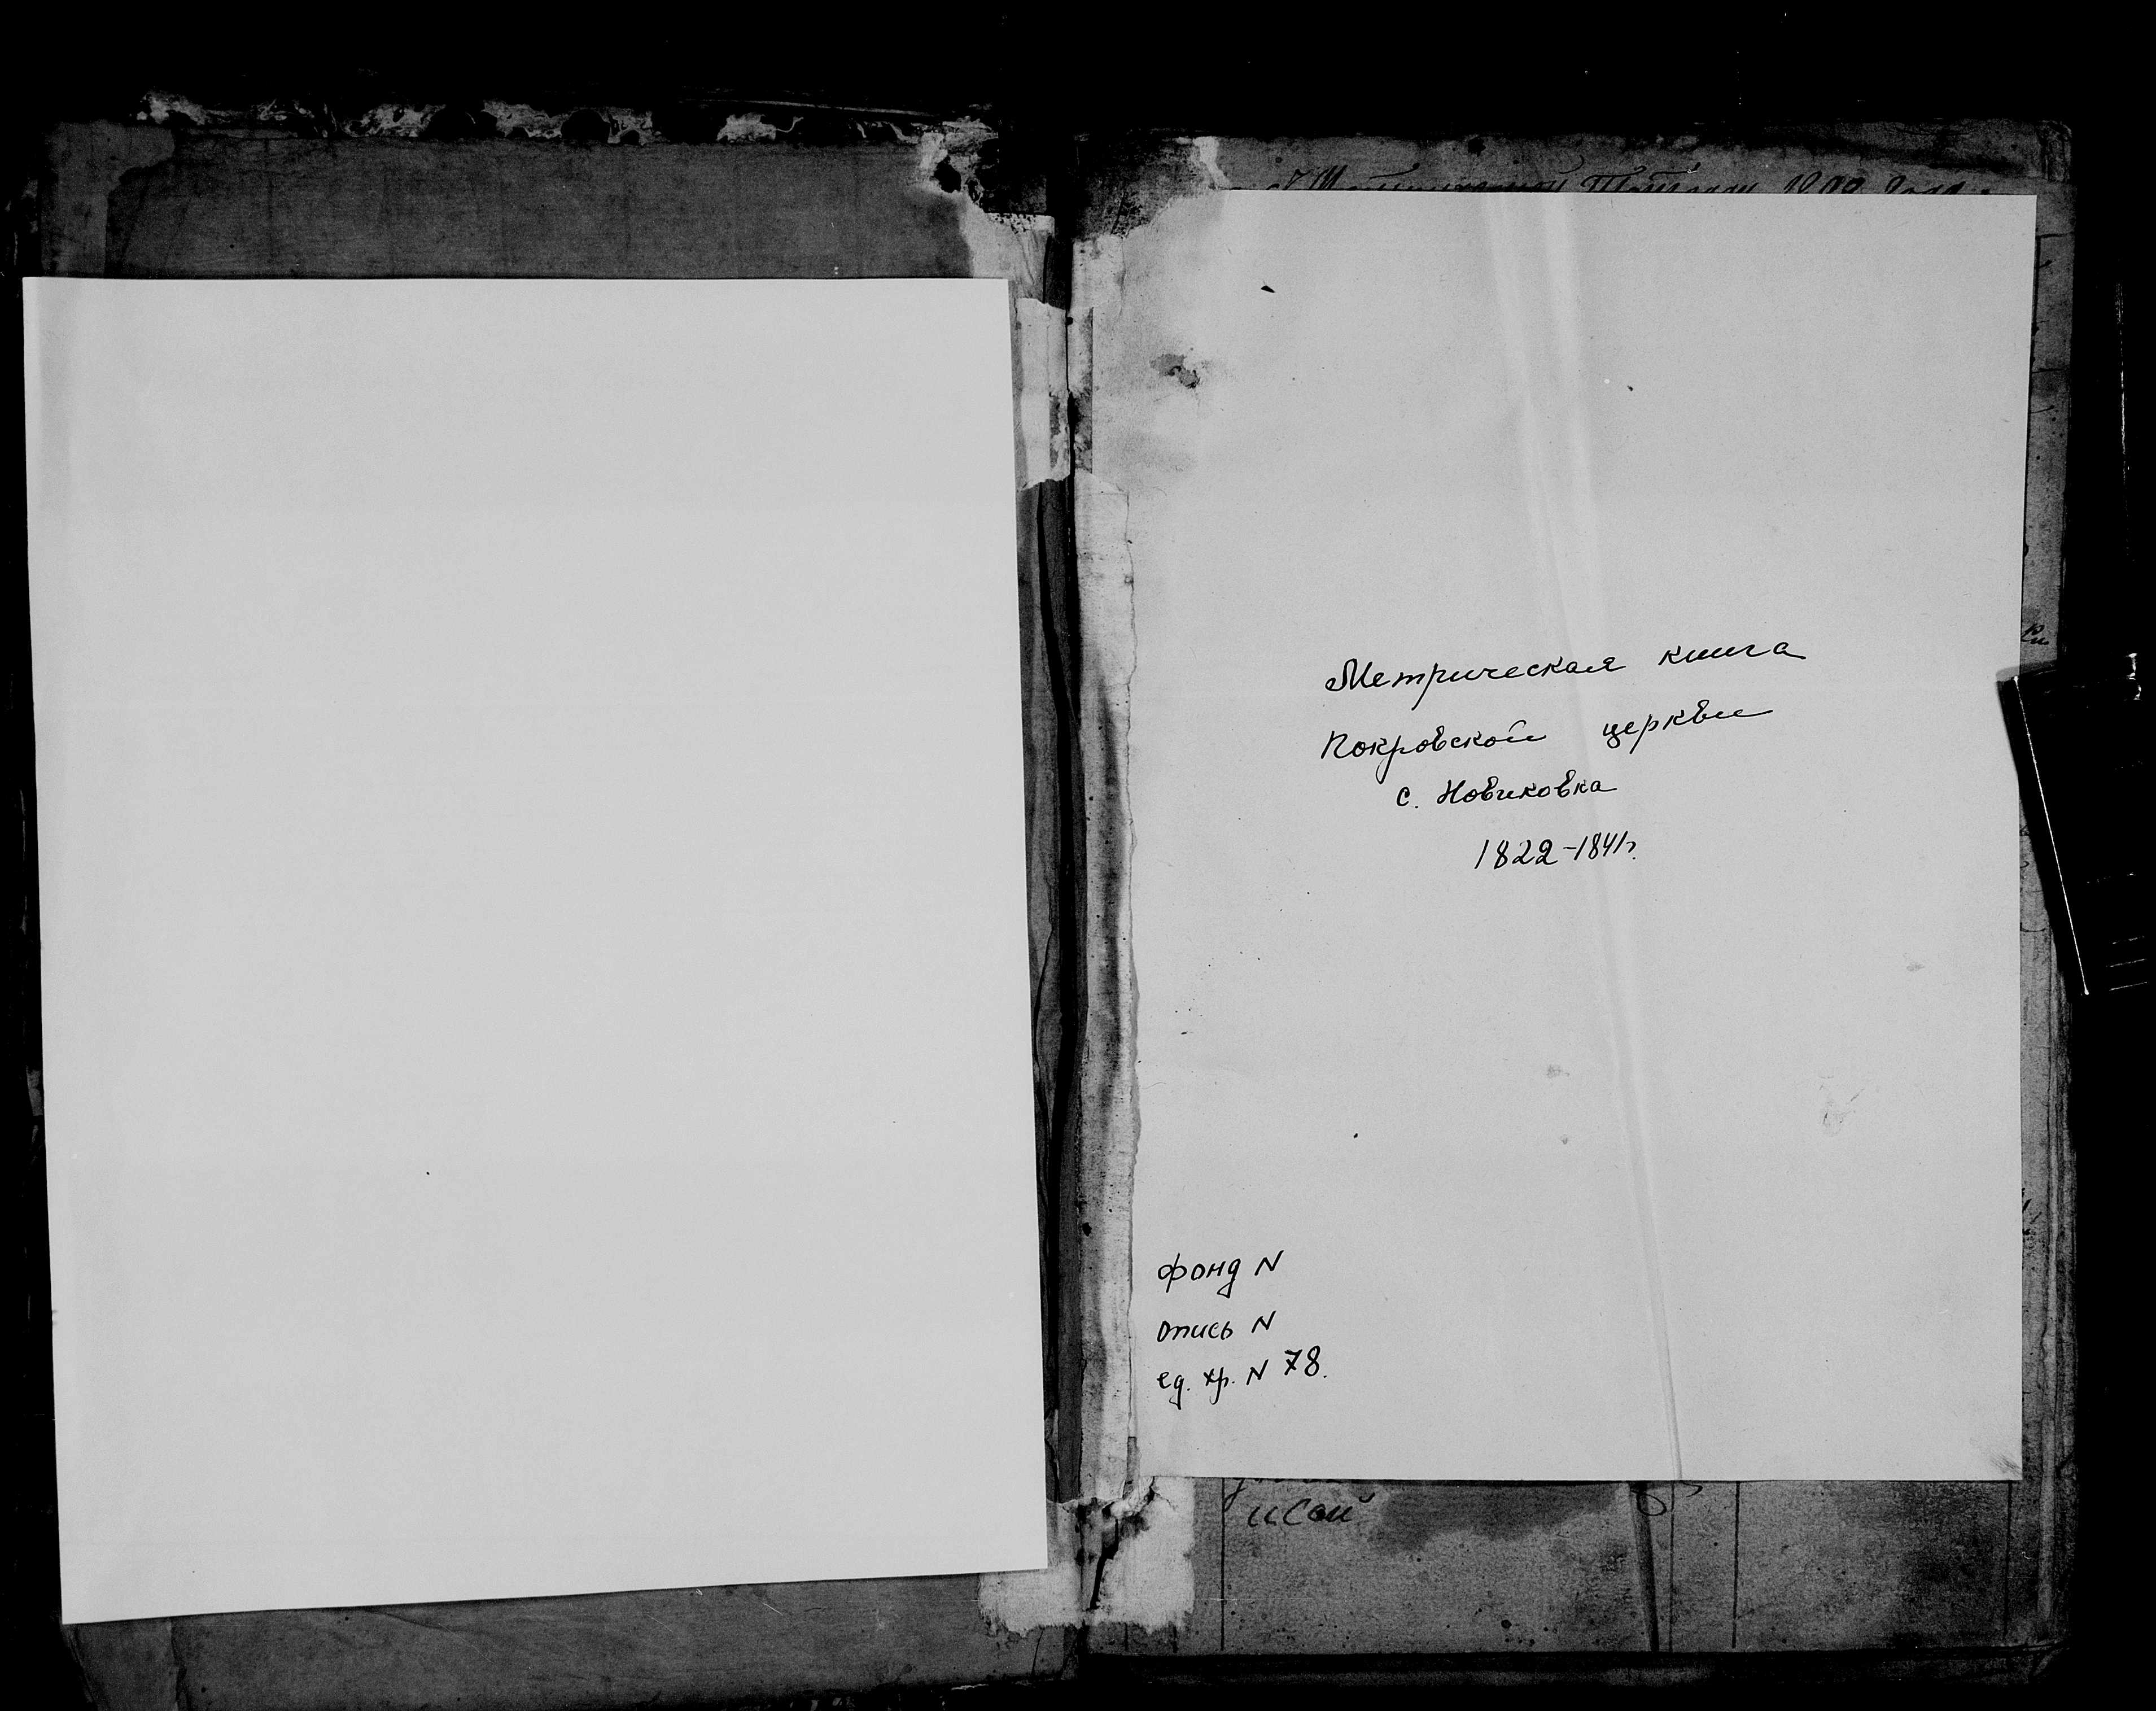 Метрическая книга
Покровской церкви
с. Новиковка
1822-1841г.
фонд N
опись N
ед. хр. N 78.